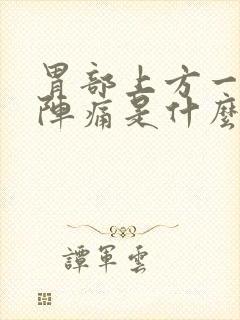 胃部上方一
陣痛是什麼
譚軍雲